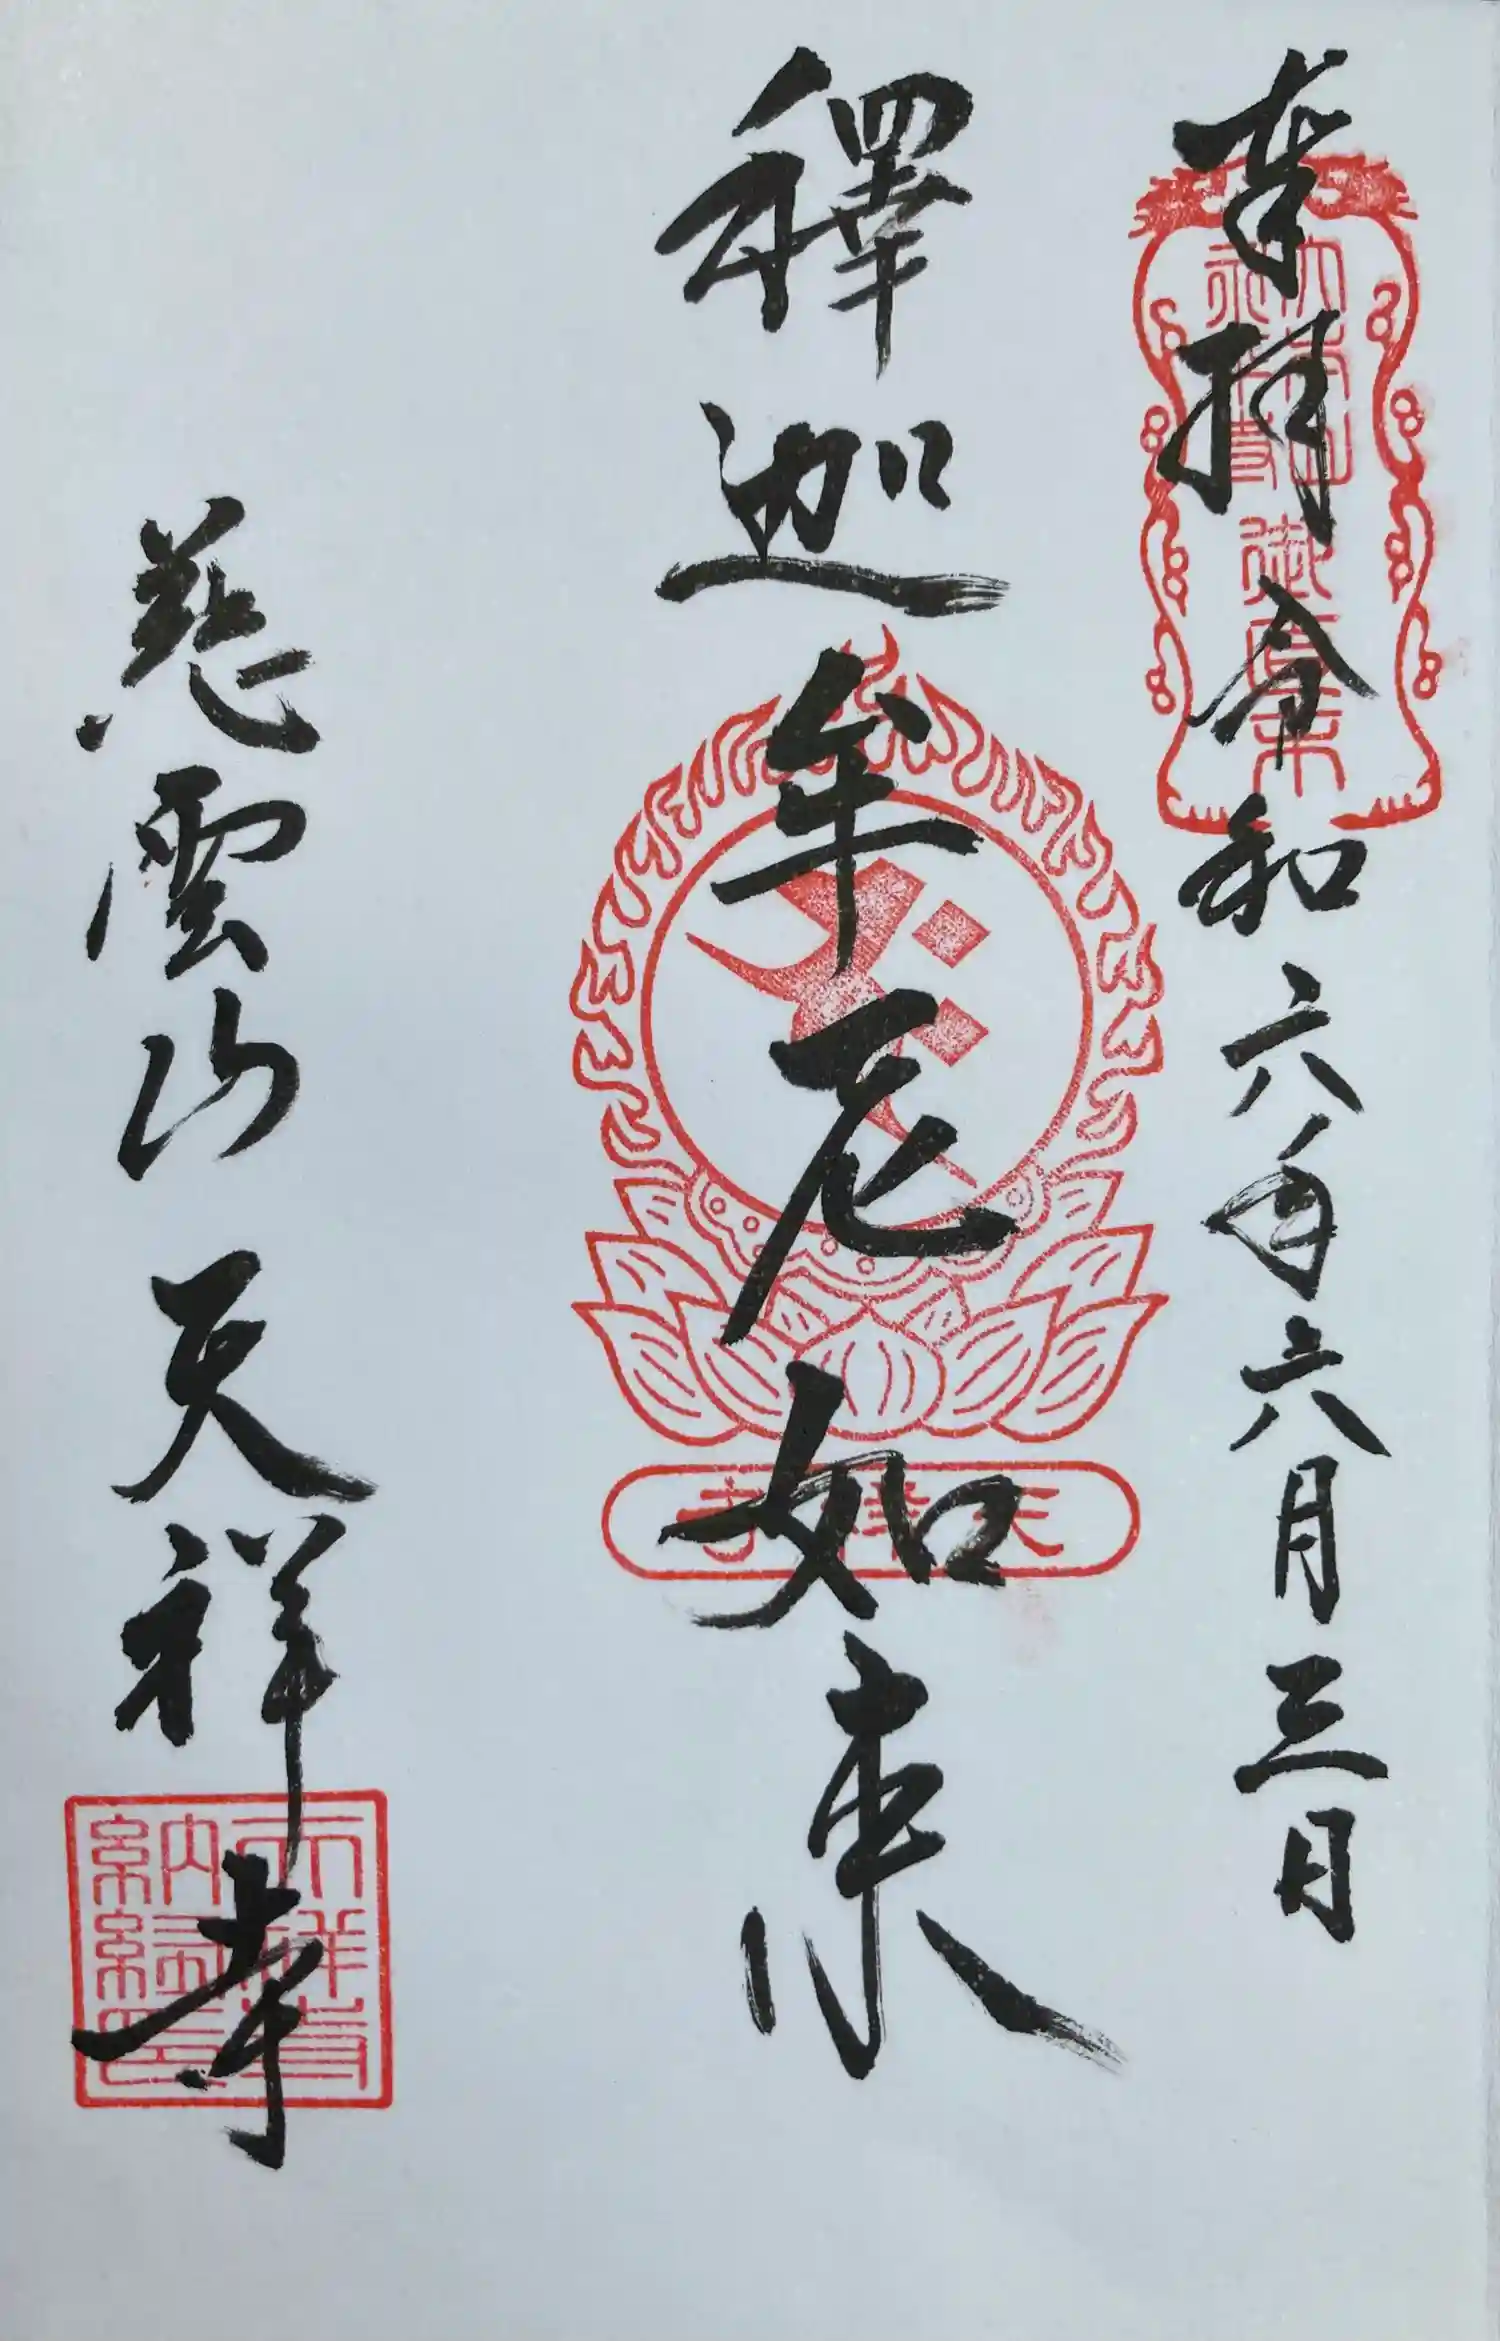 奉拝 令和六年六月三日
釋迦牟尼如来
天祥寺
慈雲山 天祥寺
天祥寺
納経印